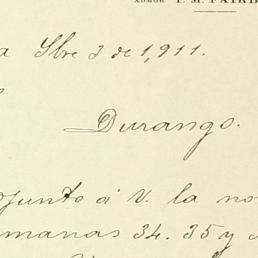 ADMOR. T. M. FAIRB
a Sbre 3 de 1,911.
Durango.
junto á V. la no
manas 34. 35 y